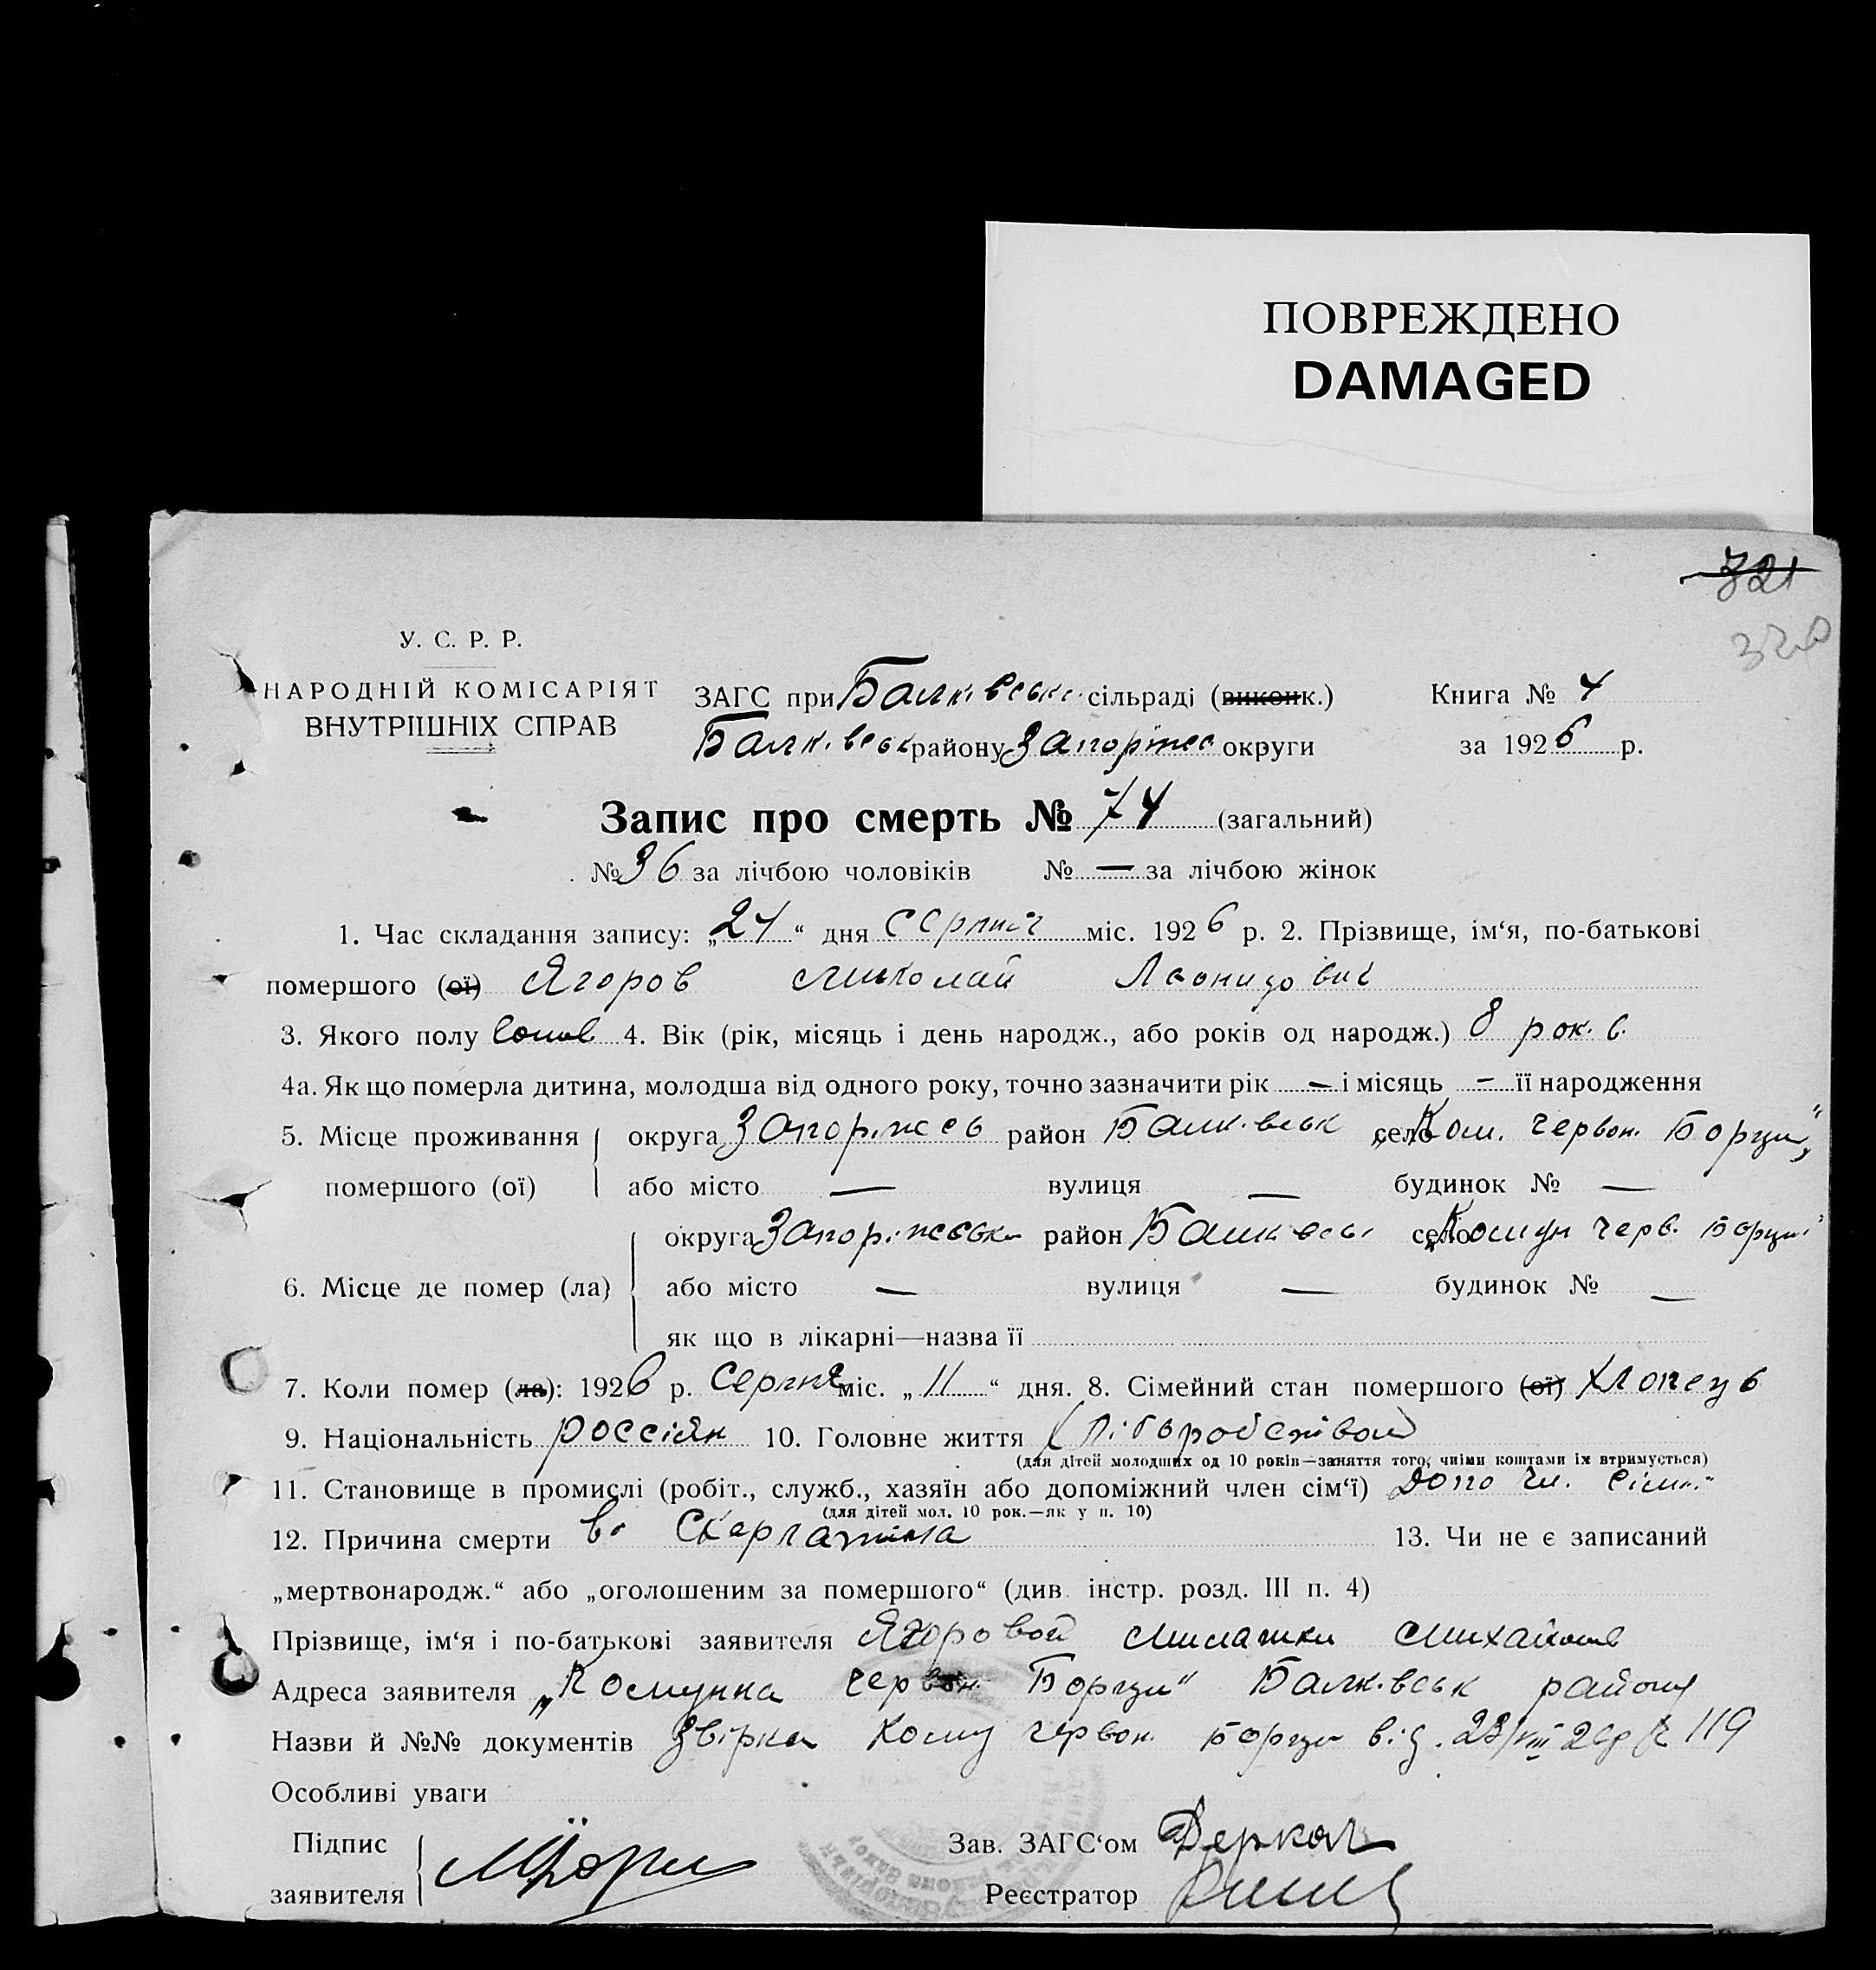 ПОВРЕЖДЕНО
DAMAGED
721
320
У. С. Р. Р.
НАРОДНІЙ КОМІСАРІЯТ
ВНУТРІШНІХ СПРАВ
ЗАГС при Балківськ. сільраді (виконк.) Книга № 4
Балк.вськ району Запоріжсь округи за 1926 р.
Запис про смерть № 74 (загальний)
№ 36 за лічбою чоловіків № — за лічбою жінок
1. Час складання запису: „24“ дня Серпня міс. 1926 р. 2. Прізвище, ім‘я, по-батькові
помершого (ої) Ягоров Миколай Леонидович
3. Якого полу 4. Вік (рік, місяць і день народж., або років од народж.) 8 рок.в.
4а. Як що померла дитина, молодша від одного року, точно зазначити рік — і місяць — її народження
5. Місце проживання округа Запоріжсь район Балк.вськ село Ком. Червон. Борци„
помершого (ої) або місто — вулиця — будинок № —
округа Запоріжськ район Балківськ село Комун Черв. Борци
6. Місце де помер (ла) або місто — вулиця — будинок № —
як що в лікарні—назва її
7. Коли помер (ла): 1926 р. Серпня міс. „11“ дня. 8. Сімейний стан помершого (ої) хлопець
9. Національність россіян 10. Головне життя хліборобством
(для дітей молодших од 10 років—заняття того, чиїми коштами їх втримується)
11. Становище в промислі (робіт., служб., хазяїн або допоміжний член сім‘ї) допо чл. сім.
(для дітей мол. 10 рок.—як у п. 10)
12. Причина смерти Скарлатина 13. Чи не є записаний
„мертвонародж.“ або „оголошеним за помершого“ (див. інстр. розд. III п. 4)
Прізвище, ім‘я і по-батькові заявителя Ягоровой
Адреса заявителя „Комунна Червон Борци“ Балк.вськ району
Назви й №№ документів Звірка Кому Червон. Борци від. 23/VIII 26р № 119
Особливі уваги
Підпис Зав. ЗАГС‘ом Деркач
заявителя Реєстратор